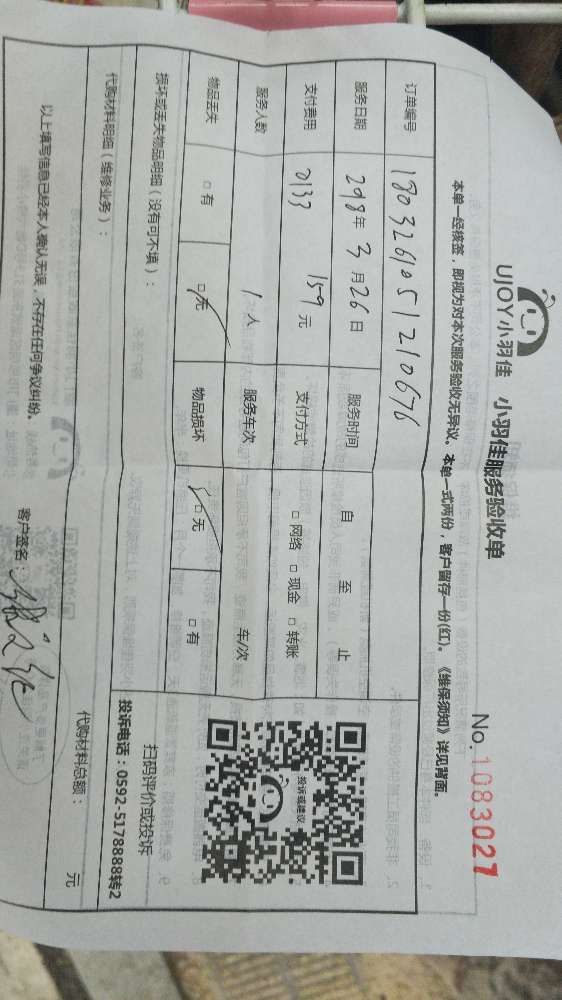 UJOY小羽佳
小羽佳服务验收单
No.1083027
本单一经核签，即视为对本次服务验收无异议。本单一式两份，客户留存一份(红)。《维保须知》详见背面。
订单编号 1803261051210676
服务日期 2018年 3 月 26 日 服务时间 自 至 止
支付费用 0133 159元 支付方式 □ 网络 □ 现金 □ 转账
服务人数 1 人 服务车次 车/次
物品丢失 □ 有 □ 无 物品损坏 □ 无 □ 有
投诉或建议
扫码评价或投诉
投诉电话：0592-5178888转2
损坏或丢失物品明细（没有可不填）：
代购材料明细（维修业务）：
代购材料总额： 元
以上填写信息已经本人确认无误，不存在任何争议纠纷。
客户签名：